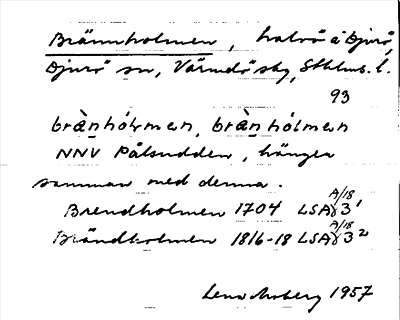 Brännholmen, halvö å Djurö,
Djurö sn, Värmdö skg, Sthlms l.
93
brà̀nhólmen, brà̀nhólmen
NNV Pålsudden, hänger
samman med denna.
Brendholmen 1704 LSA A/18 γ3¹
Brändholmen 1816-18 LSA A/18 γ3²
Lena Moberg 1957